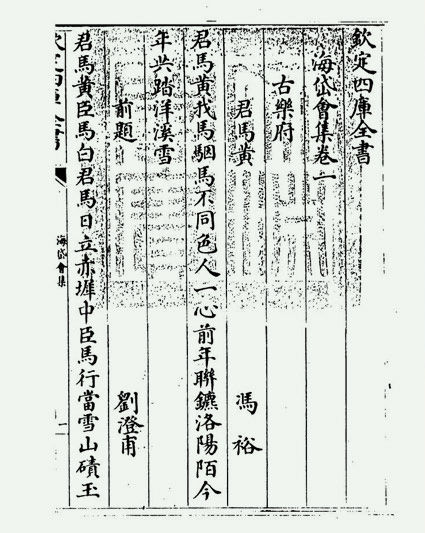 欽定四庫全書
海岱會集卷一
古樂府
君馬黃 馮裕
君馬黃我馬駰馬不同色人一心前年聯鑣洛陽陌今
年共踏洋溪雪
前題 劉澄甫
君馬黃臣馬白君馬日立赤墀中臣馬行當雪山磧玉
海岱會集
一